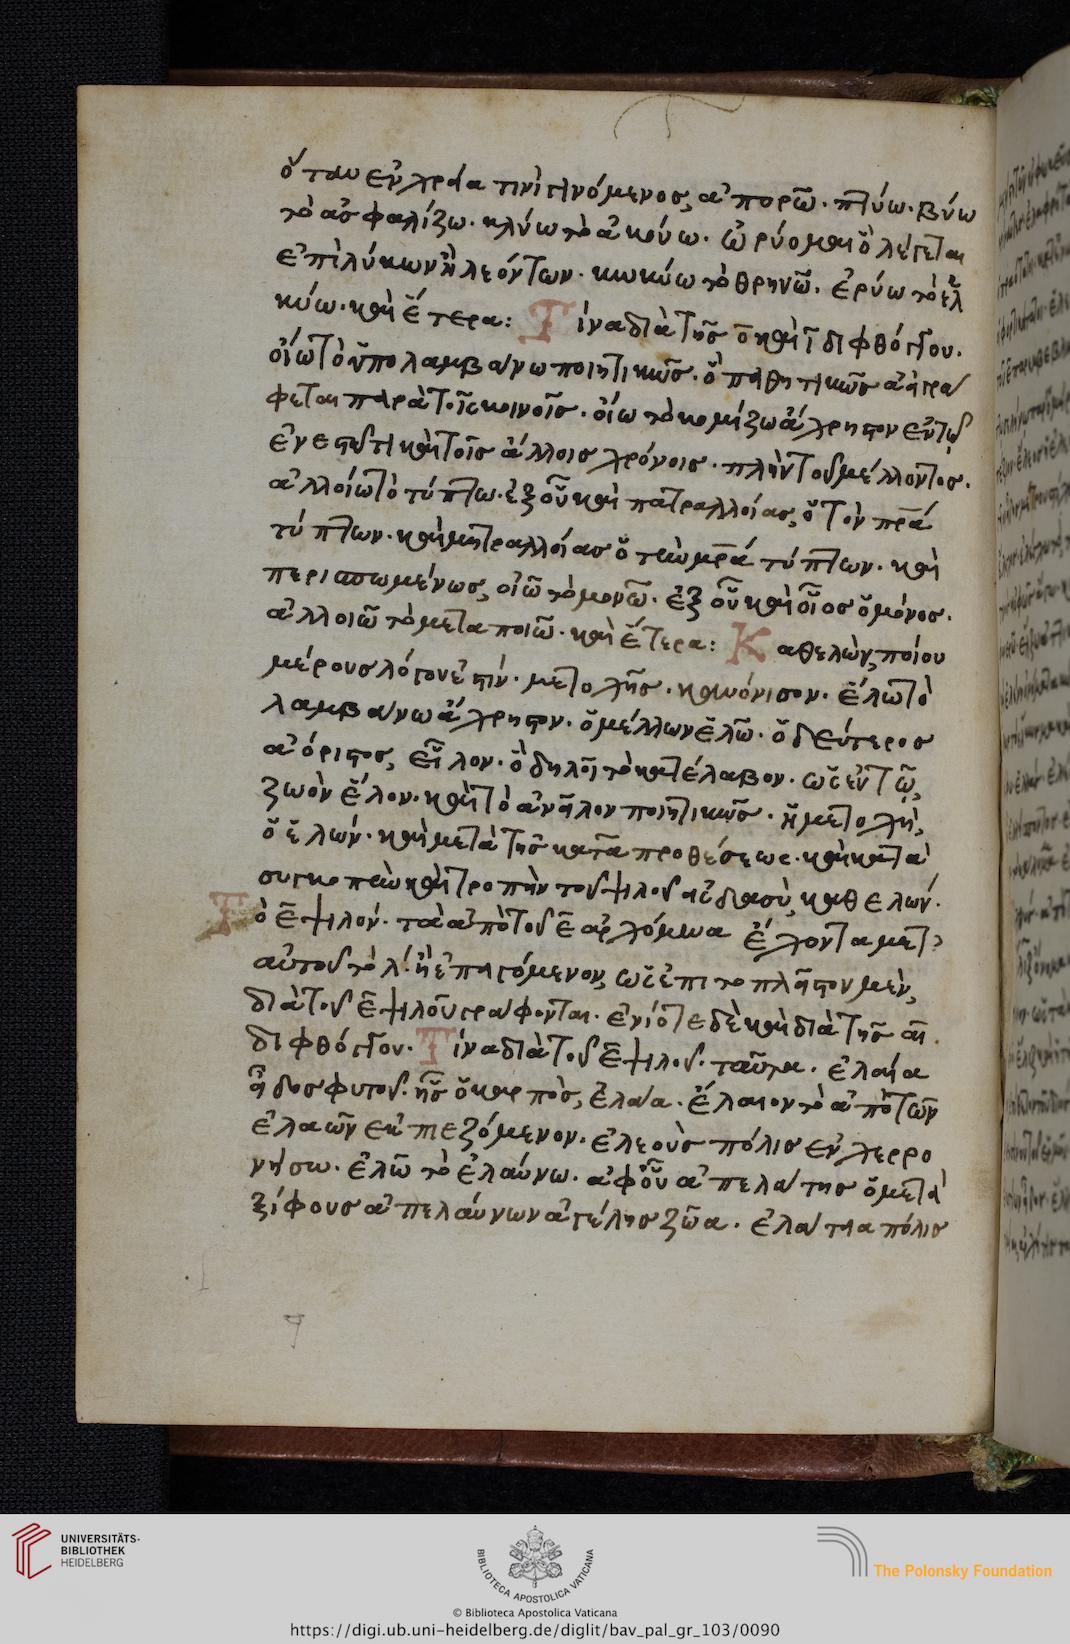 ὅταν ἐν χρεία τινὶ γινόμενος, ἀπορῶ. πτύω. βύω
τὸ ἀσφαλίζω. κλύω τὸ ἀκούω. ὠρύομαι ὃ λέγεται
ἐπὶ λύκων ἢ λεόντων. κωκύω τὸ θρηνῶ. ἐρύω τὸ ἑλ
κύω. καὶ ἕτερα: Τίνα διὰ τῆς ο καὶ ι διφθόγγου.
οἴω τὸ ὑπολαμβάνω ποιητικῶς. ὃ παθητικῶς ἀεὶ γρά
φεται παρὰ τοῖς κοινοῖς. οἴω τὸ κομίζω ἄχρηστον ἐν τῷ
ἐνεστῶτι καὶ τοῖς ἄλλοις χρόνοις. πλὴν τοῦ μέλλοντος.
ἀλλοίω τὸ τύπτω. ἐξ οὗ καὶ πατραλλοίας, ὁ τὸν πρα
τύπτων. καὶ μητραλλοίας ὁ τὴν μρα τύπτων. καὶ
περισπωμένως, οἰῶ τὸ μονῶ. ἐξ οὗ καὶ οἶος ὁ μόνος.
ἀλλοιῶ τὸ μεταποιῶ. καὶ ἕτερα: Καθελὼν, ποίου
μέρους λόγου ἐστίν. μετοχῆς. κανόνισον. ἕλω τὸ
λαμβάνω ἄχρηστον. ὁ μέλλων ἑλῶ. ὁ δεύτερος
ἀόριστος, εἷλον. ὃ δηλοῖ τὸ κατέλαβον. ὡς ἐν τῷ,
ζωὸν ἕλον. καὶ τὸ ἀνεῖλον ποιητικῶς. ἡ μετοχὴ,
ὁ ἑλών. καὶ μετὰ τῆς κατα προθέσεως. καὶ κατὰ
συγκοπὴν καὶ τροπὴν τοῦ ψιλοῦ εἰς δασὺ, καθελών.
Τὸ ε ψιλόν. τὰ ἀπὸ τοῦ ε ἀρχόμενα ἔχοντα μετ
αὐτοῦ τὸ λ. ἢ ἐπαγόμενον, ὡς ἐπι το πλεῖστον μὲν,
διὰ τοῦ ε ψιλοῦ γράφονται. ἐνίοτε δὲ καὶ διὰ τῆς αι
διφθόγγου. Τίνα διὰ τοῦ ε ψιλοῦ. ταῦτα. ἐλαία
εἶδος φυτοῦ. ἧς ὁ καρπὸς, ἐλάα. ἔλαιον τὸ ἀπὸ τῶν
ἐλαιῶν ἐκπιεζόμενον. ἐλεοὺς πόλις ἐν χερρο
νήσω. ἐλῶ τὸ ἐλαύνω. ἀφ' οὗ ἀπελάτης ὁ μετὰ
ξίφους ἀπελαύνων ἀγέλης ζῶα. ἐλάτεια πόλις
UNIVERSITÄTS-
BIBLIOTHEK
HEIDELBERG
BIBLIOTECA APOSTOLICA VATICANA
The Polonsky Foundation
© Biblioteca Apostolica Vaticana
https://digi.ub.uni-heidelberg.de/diglit/bav_pal_gr_103/0090